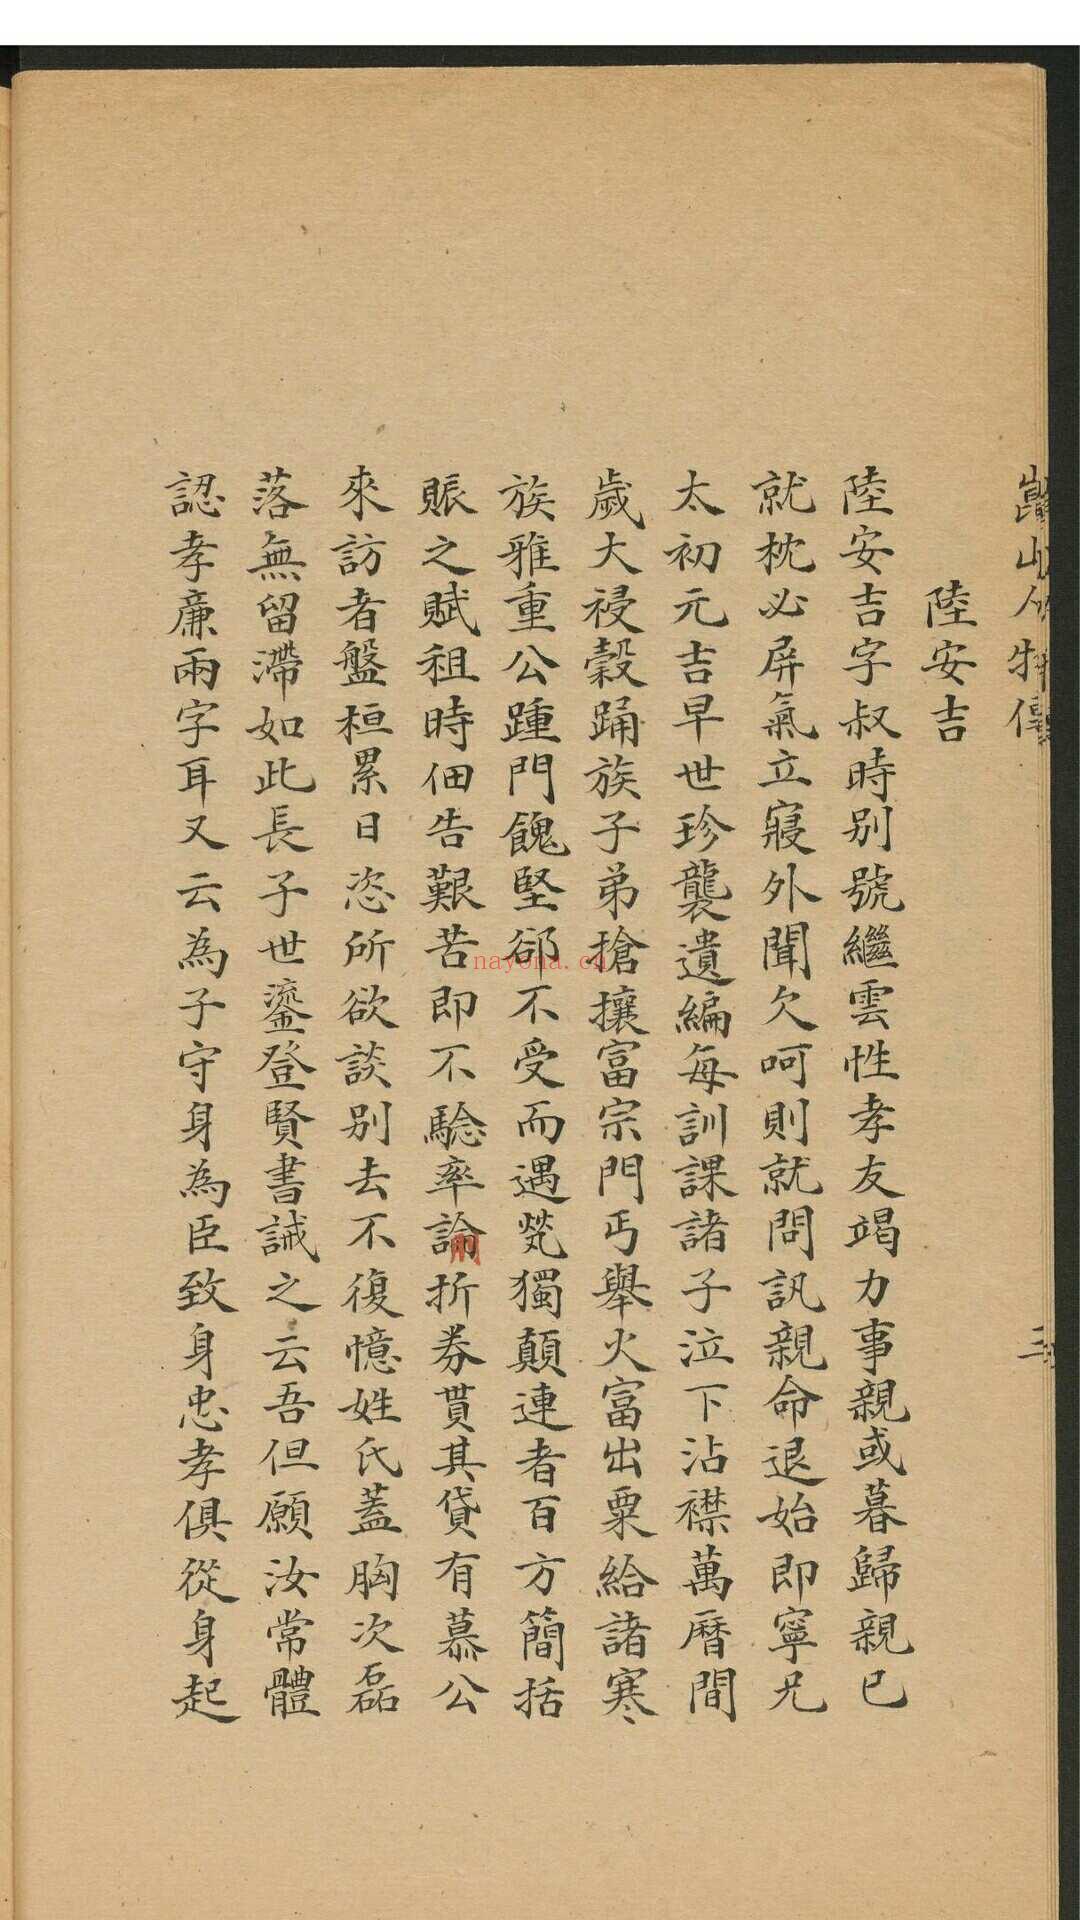 山人物傳
三
陸安吉
陸安吉字叔時別號繼雲性孝友竭力事親或暮歸親已
就枕必屏氣立寢外聞欠呵則就問訊親命退始即寧兄
太初元吉早世珍襲遺編每訓課諸子泣下沾襟萬曆間
歲大祲穀踊族子弟搶攘富宗門丐舉火富出粟給諸寒
族雅重公踵門餽堅郤不受而遇煢獨顛連者百方簡括
賑之賦租時佃告艱苦即不騐率論折券貰其貸有慕公
來訪者盤桓累日恣所欲談別去不復憶姓氏蓋胸次磊
落無留滯如此長子世鎏登賢書誡之云吾但願汝常體
認孝廉兩字耳又云為子守身為臣致身忠孝俱從身起
nayona.cn